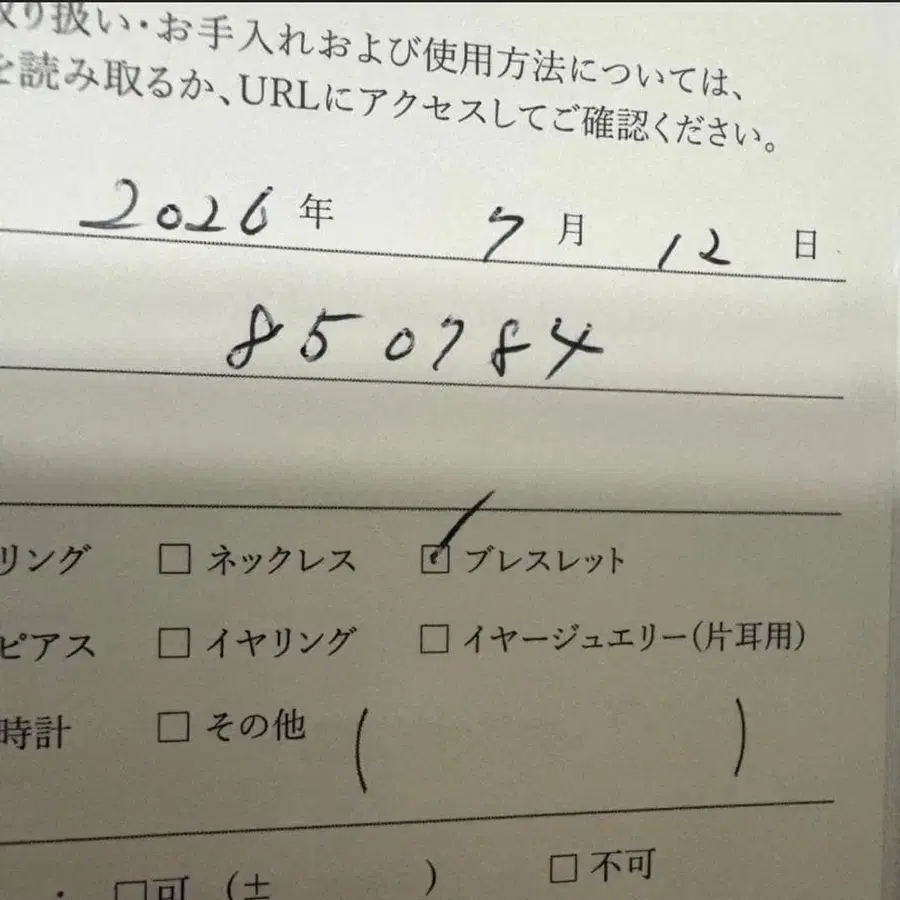 取り扱い・お手入れおよび使用方法については、
を読み取るか、URLにアクセスしてご確認ください。
2026年 7月 12日
850784
リング □ ネックレス ☑ ブレスレット
ピアス □ イヤリング □ イヤージュエリー(片耳用)
時計 □ その他 ( )
□可 (± ) □ 不可